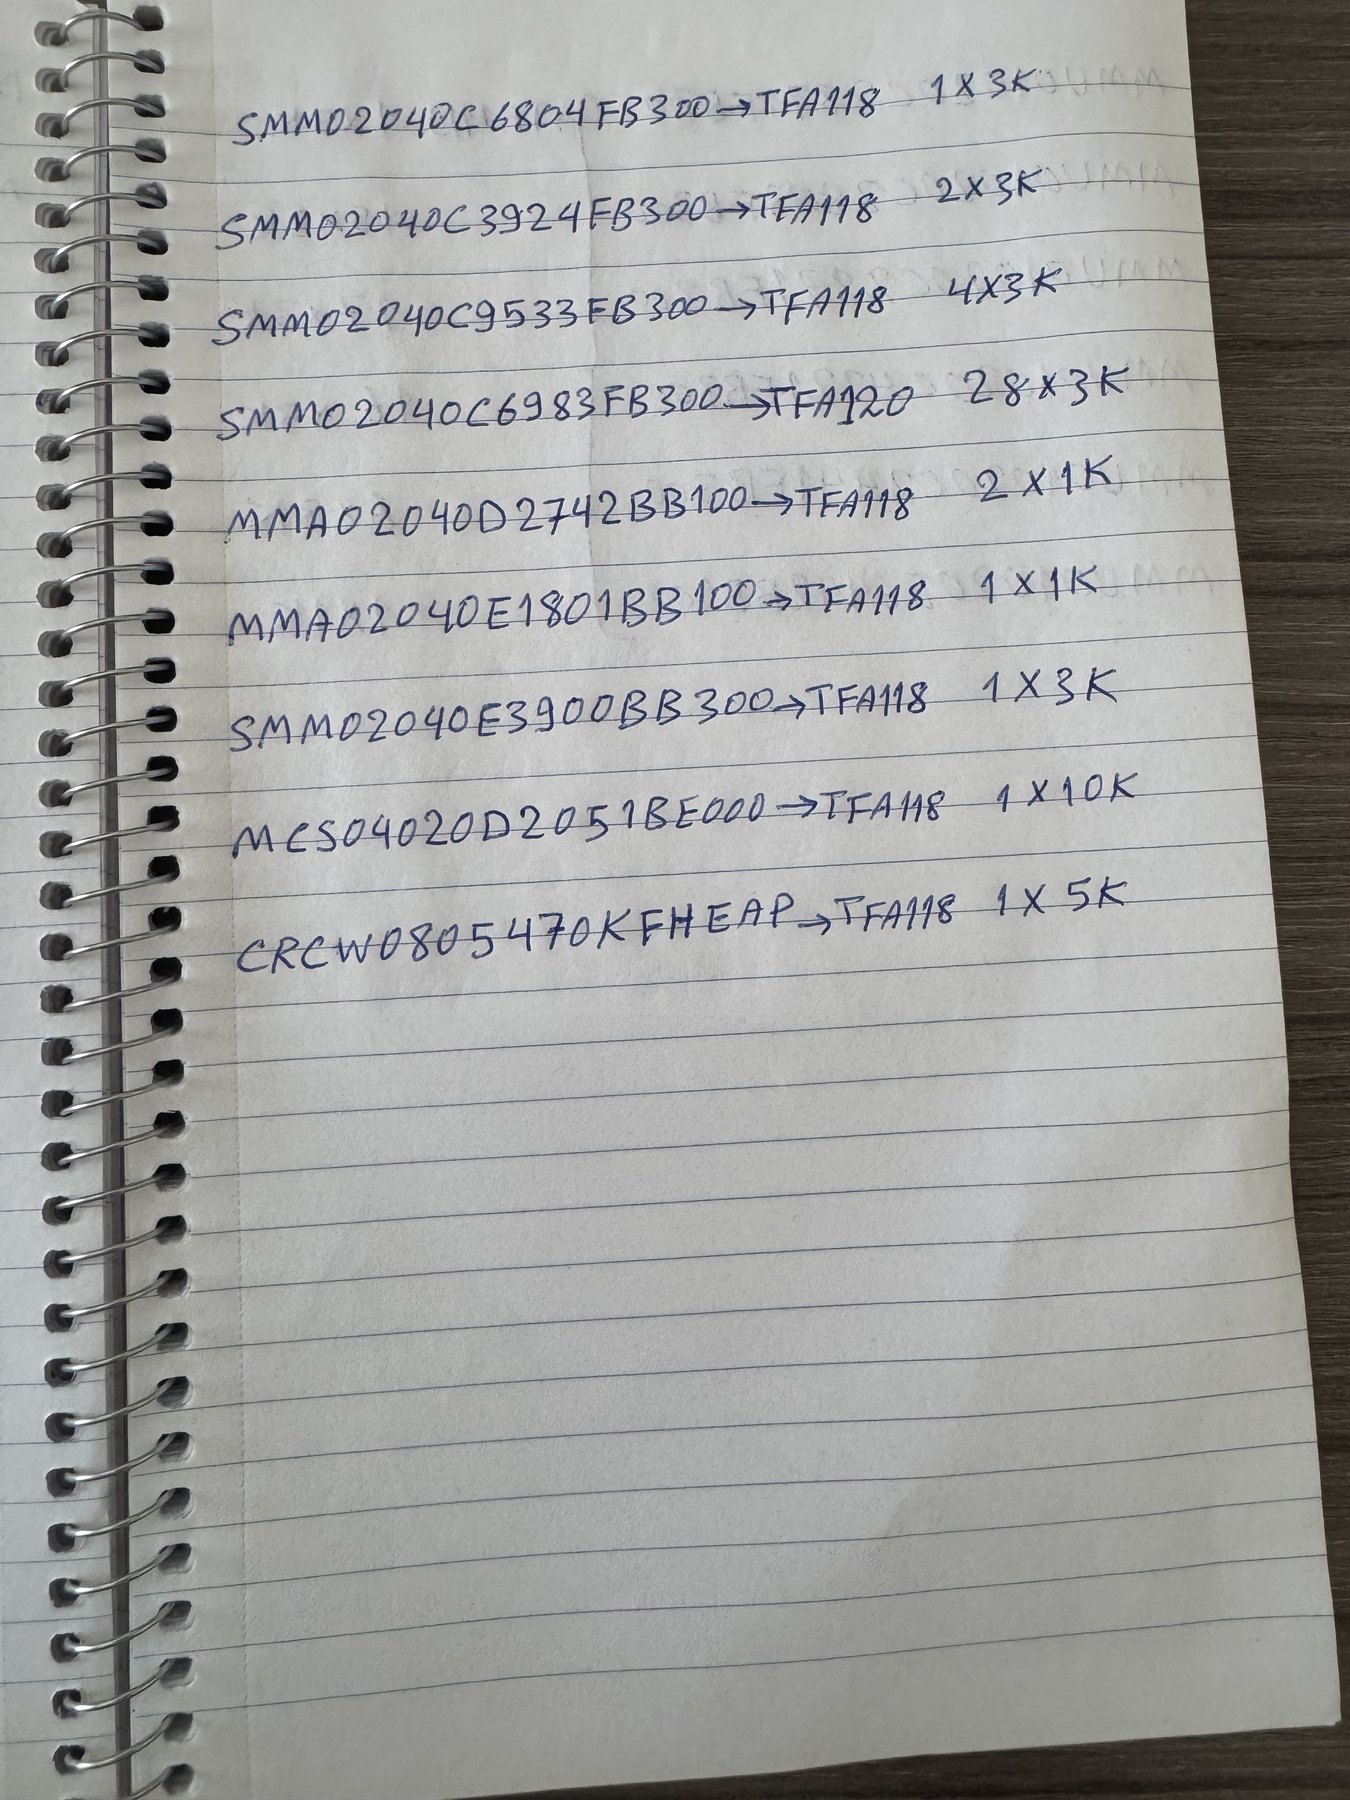 SMM02040C6804FB300→TFA118 1X3K
SMM02040C3924FB300→TFA118 2X3K
SMM02040C9533FB300→TFA118 4X3K
SMM02040C6983FB300→TFA120 28X3K
MMA02040D2742BB100→TFA118 2X1K
MMA02040E1801BB100→TFA118 1X1K
SMM02040E3900BB300→TFA118 1X3K
MCS04020D2051BE000→TFA118 1X10K
CRCW0805470KFHEAP→TFA118 1X5K